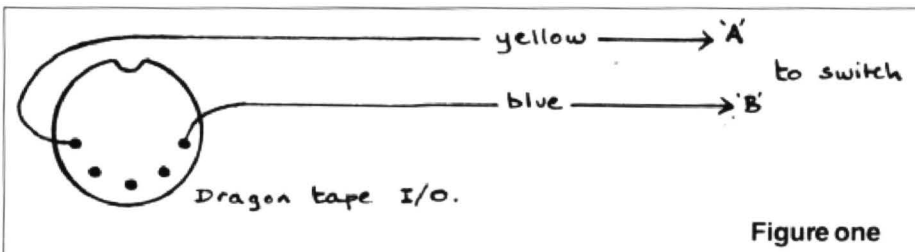 yellow 'A'
to switch
blue 'B'
Dragon tape I/O.
Figure one